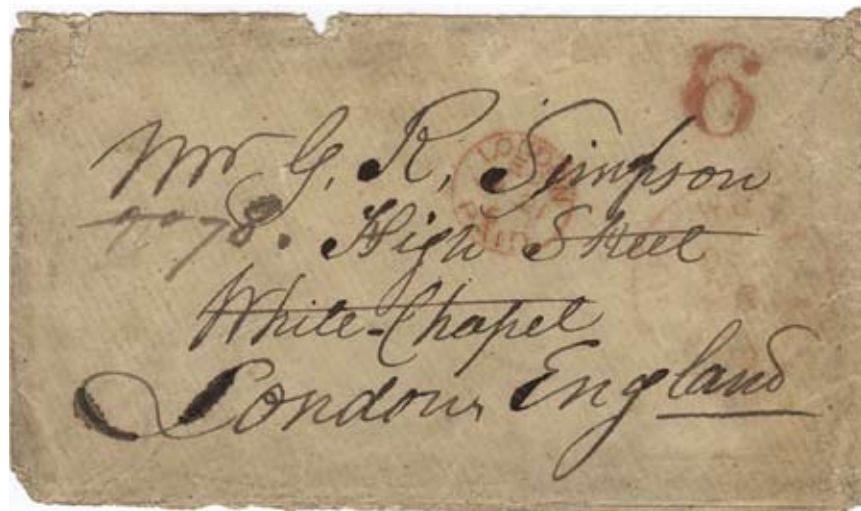 6
Mr G. R. Simpson
No 78. High Street
White-Chapel
London, England
LONDON
PAID